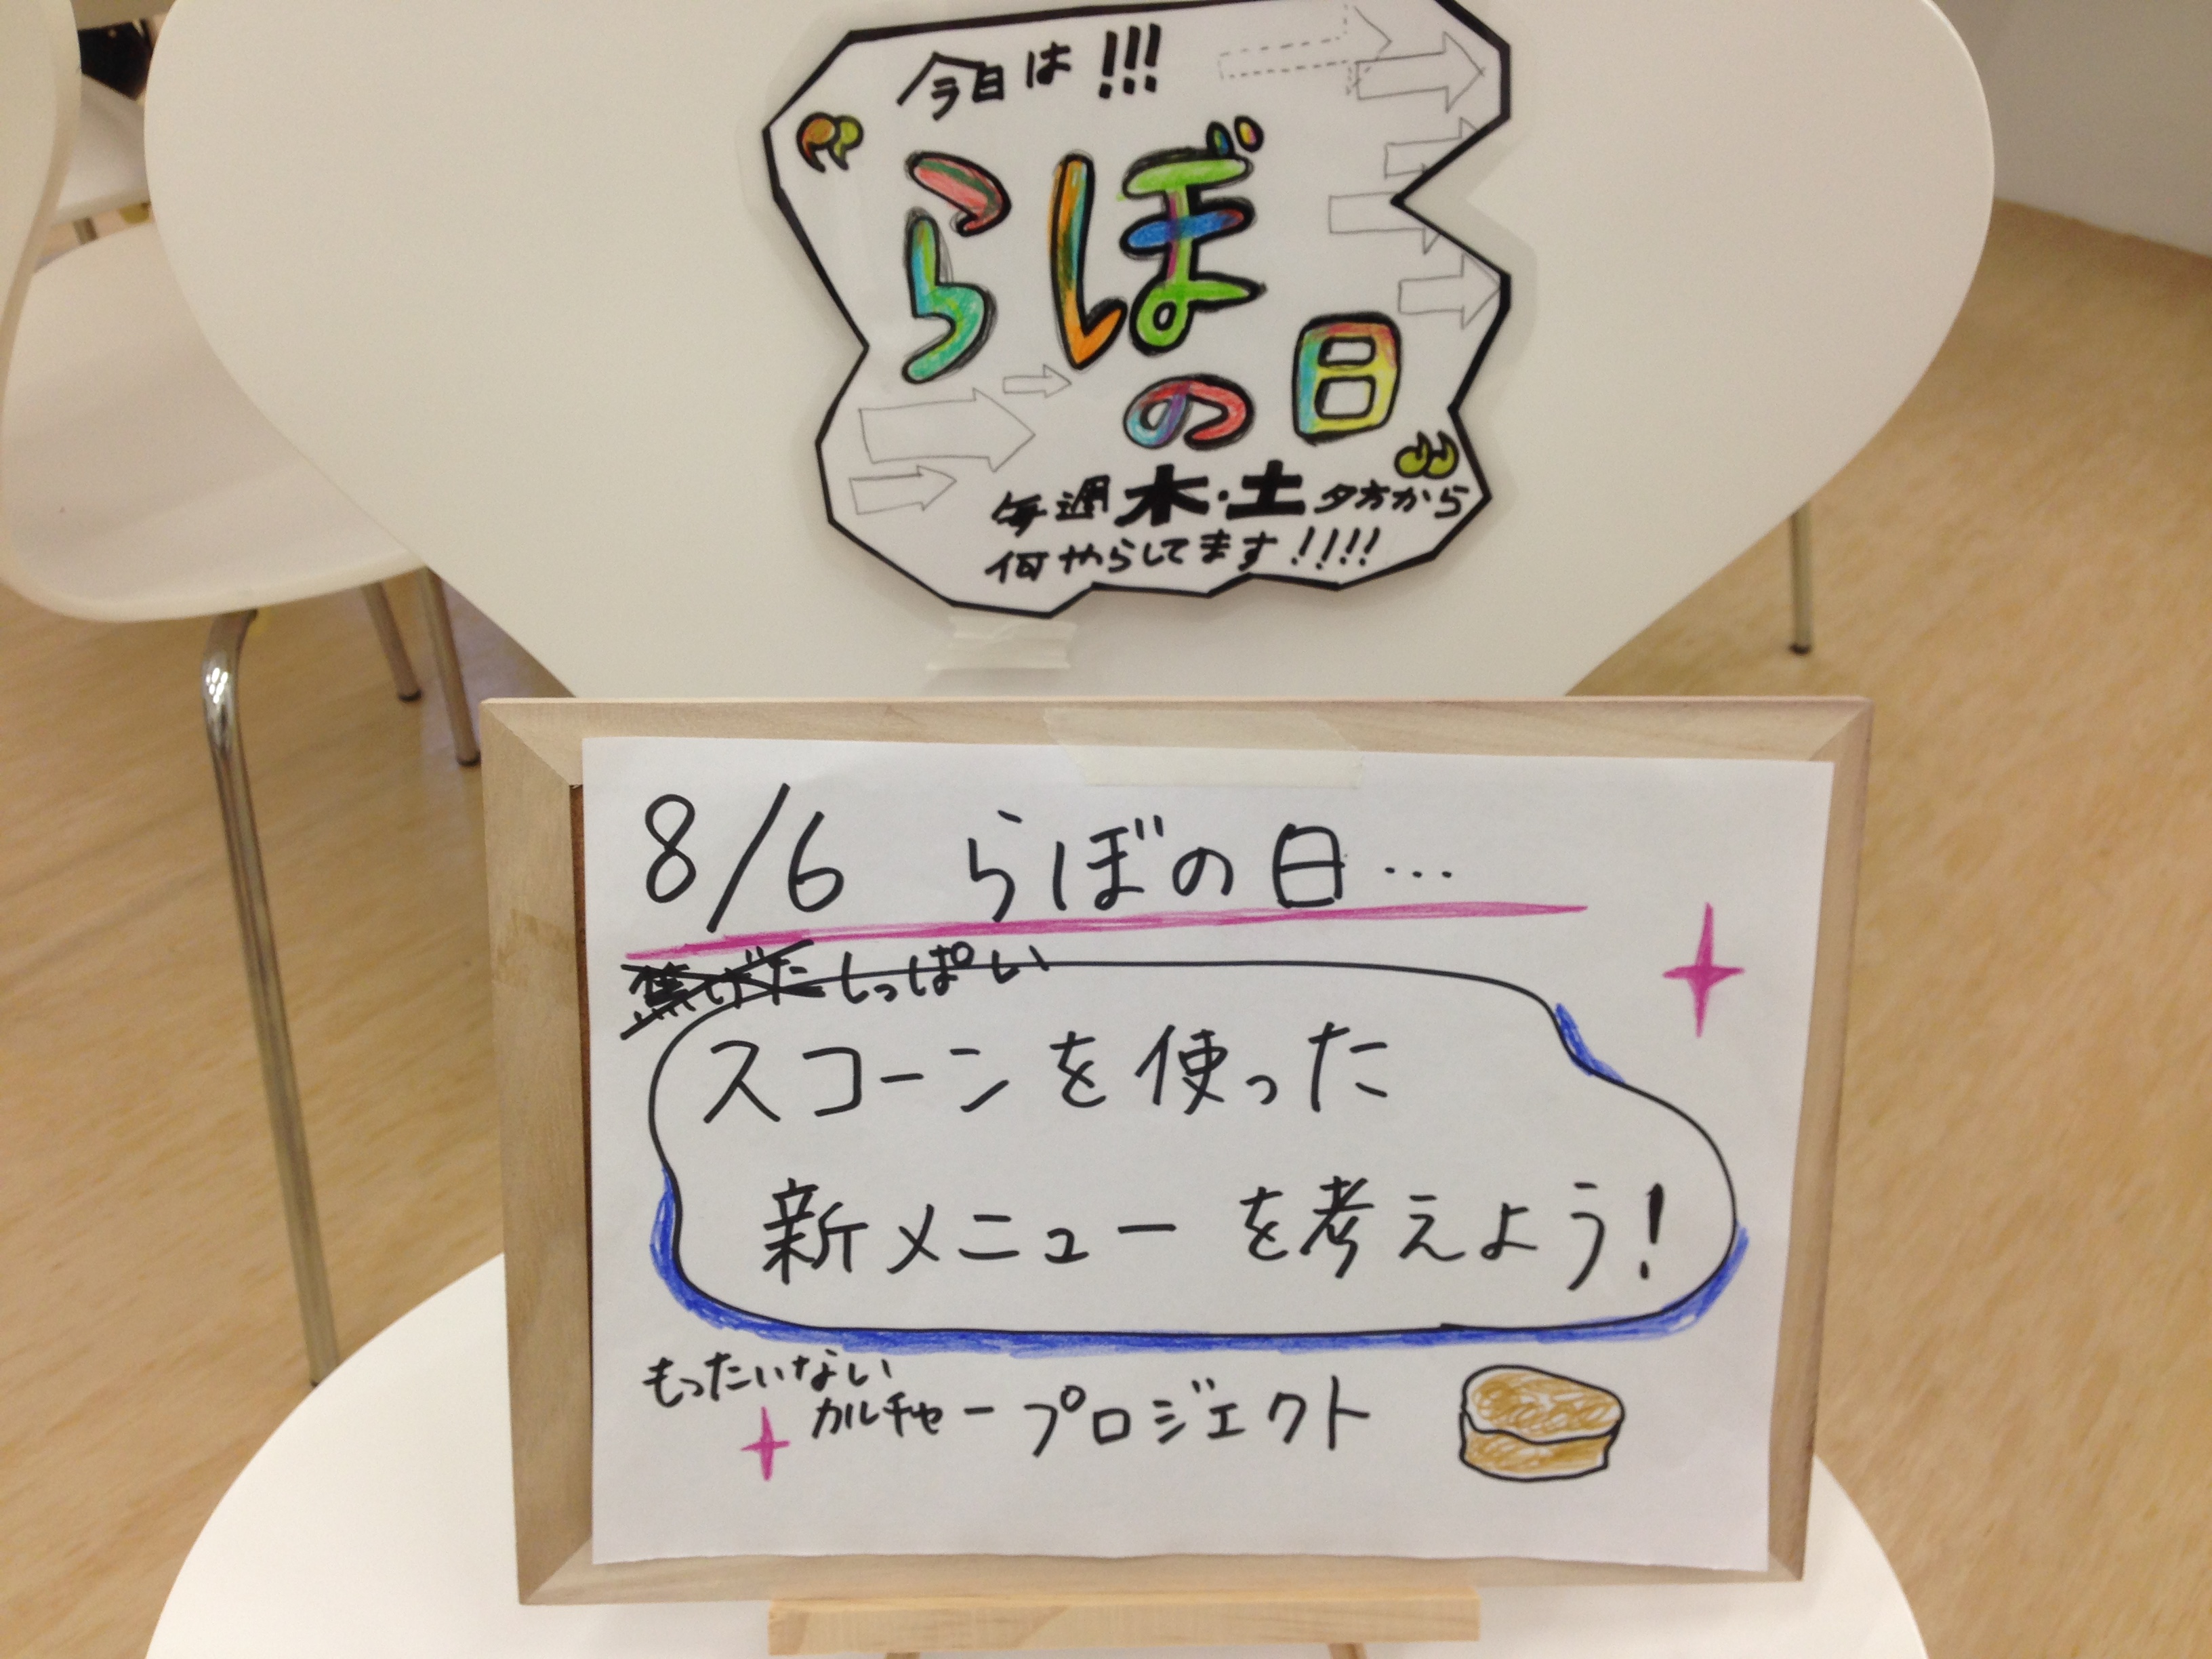 今日は!!!
らぼ
の日
毎週木・土夕方から
何やらしてます!!!!
8/6 らぼの日…
焦げた しっぱい
スコーンを使った
新メニューを考えよう!
もったいない
カルチャープロジェクト